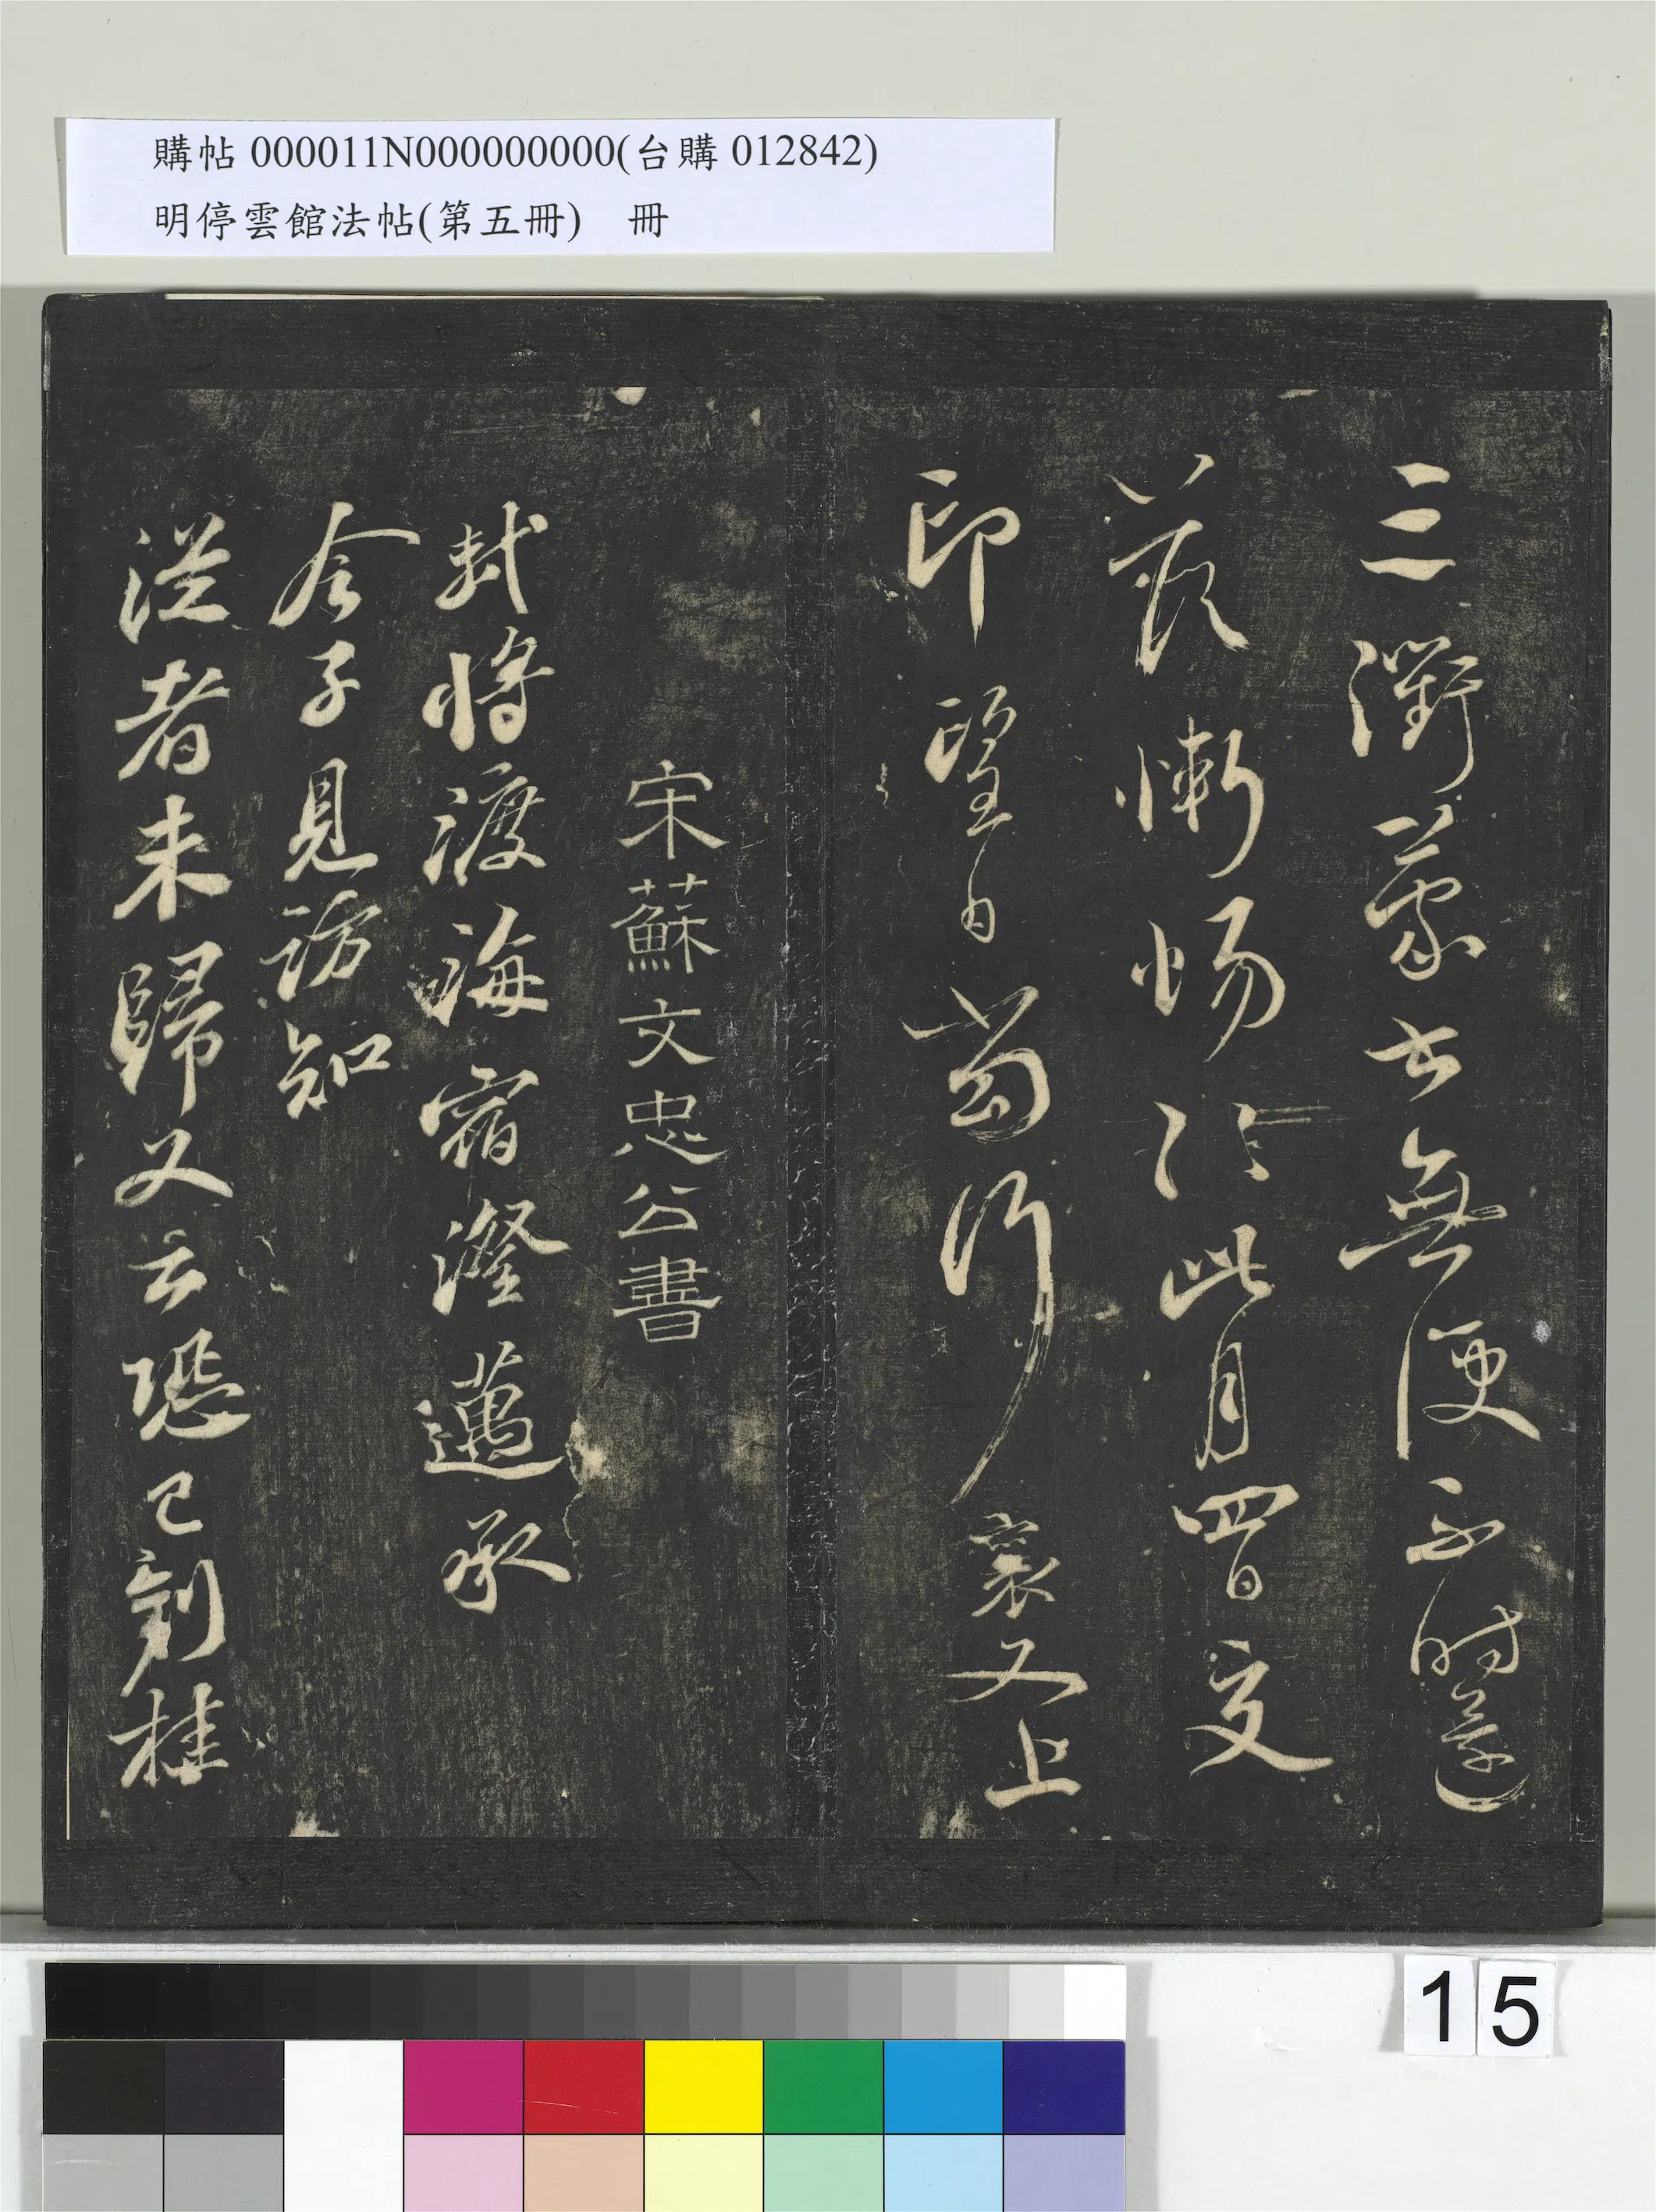 購帖 000011N000000000(台購 012842)
明停雲館法帖(第五冊) 冊
三衢蒙書無便不時還
答慚惕慚惕此月四日交
印望日當行 襄又上
宋蘇文忠公書
軾將渡海宿澄邁承
令子見訪知
從者未歸又云恐已到桂
15